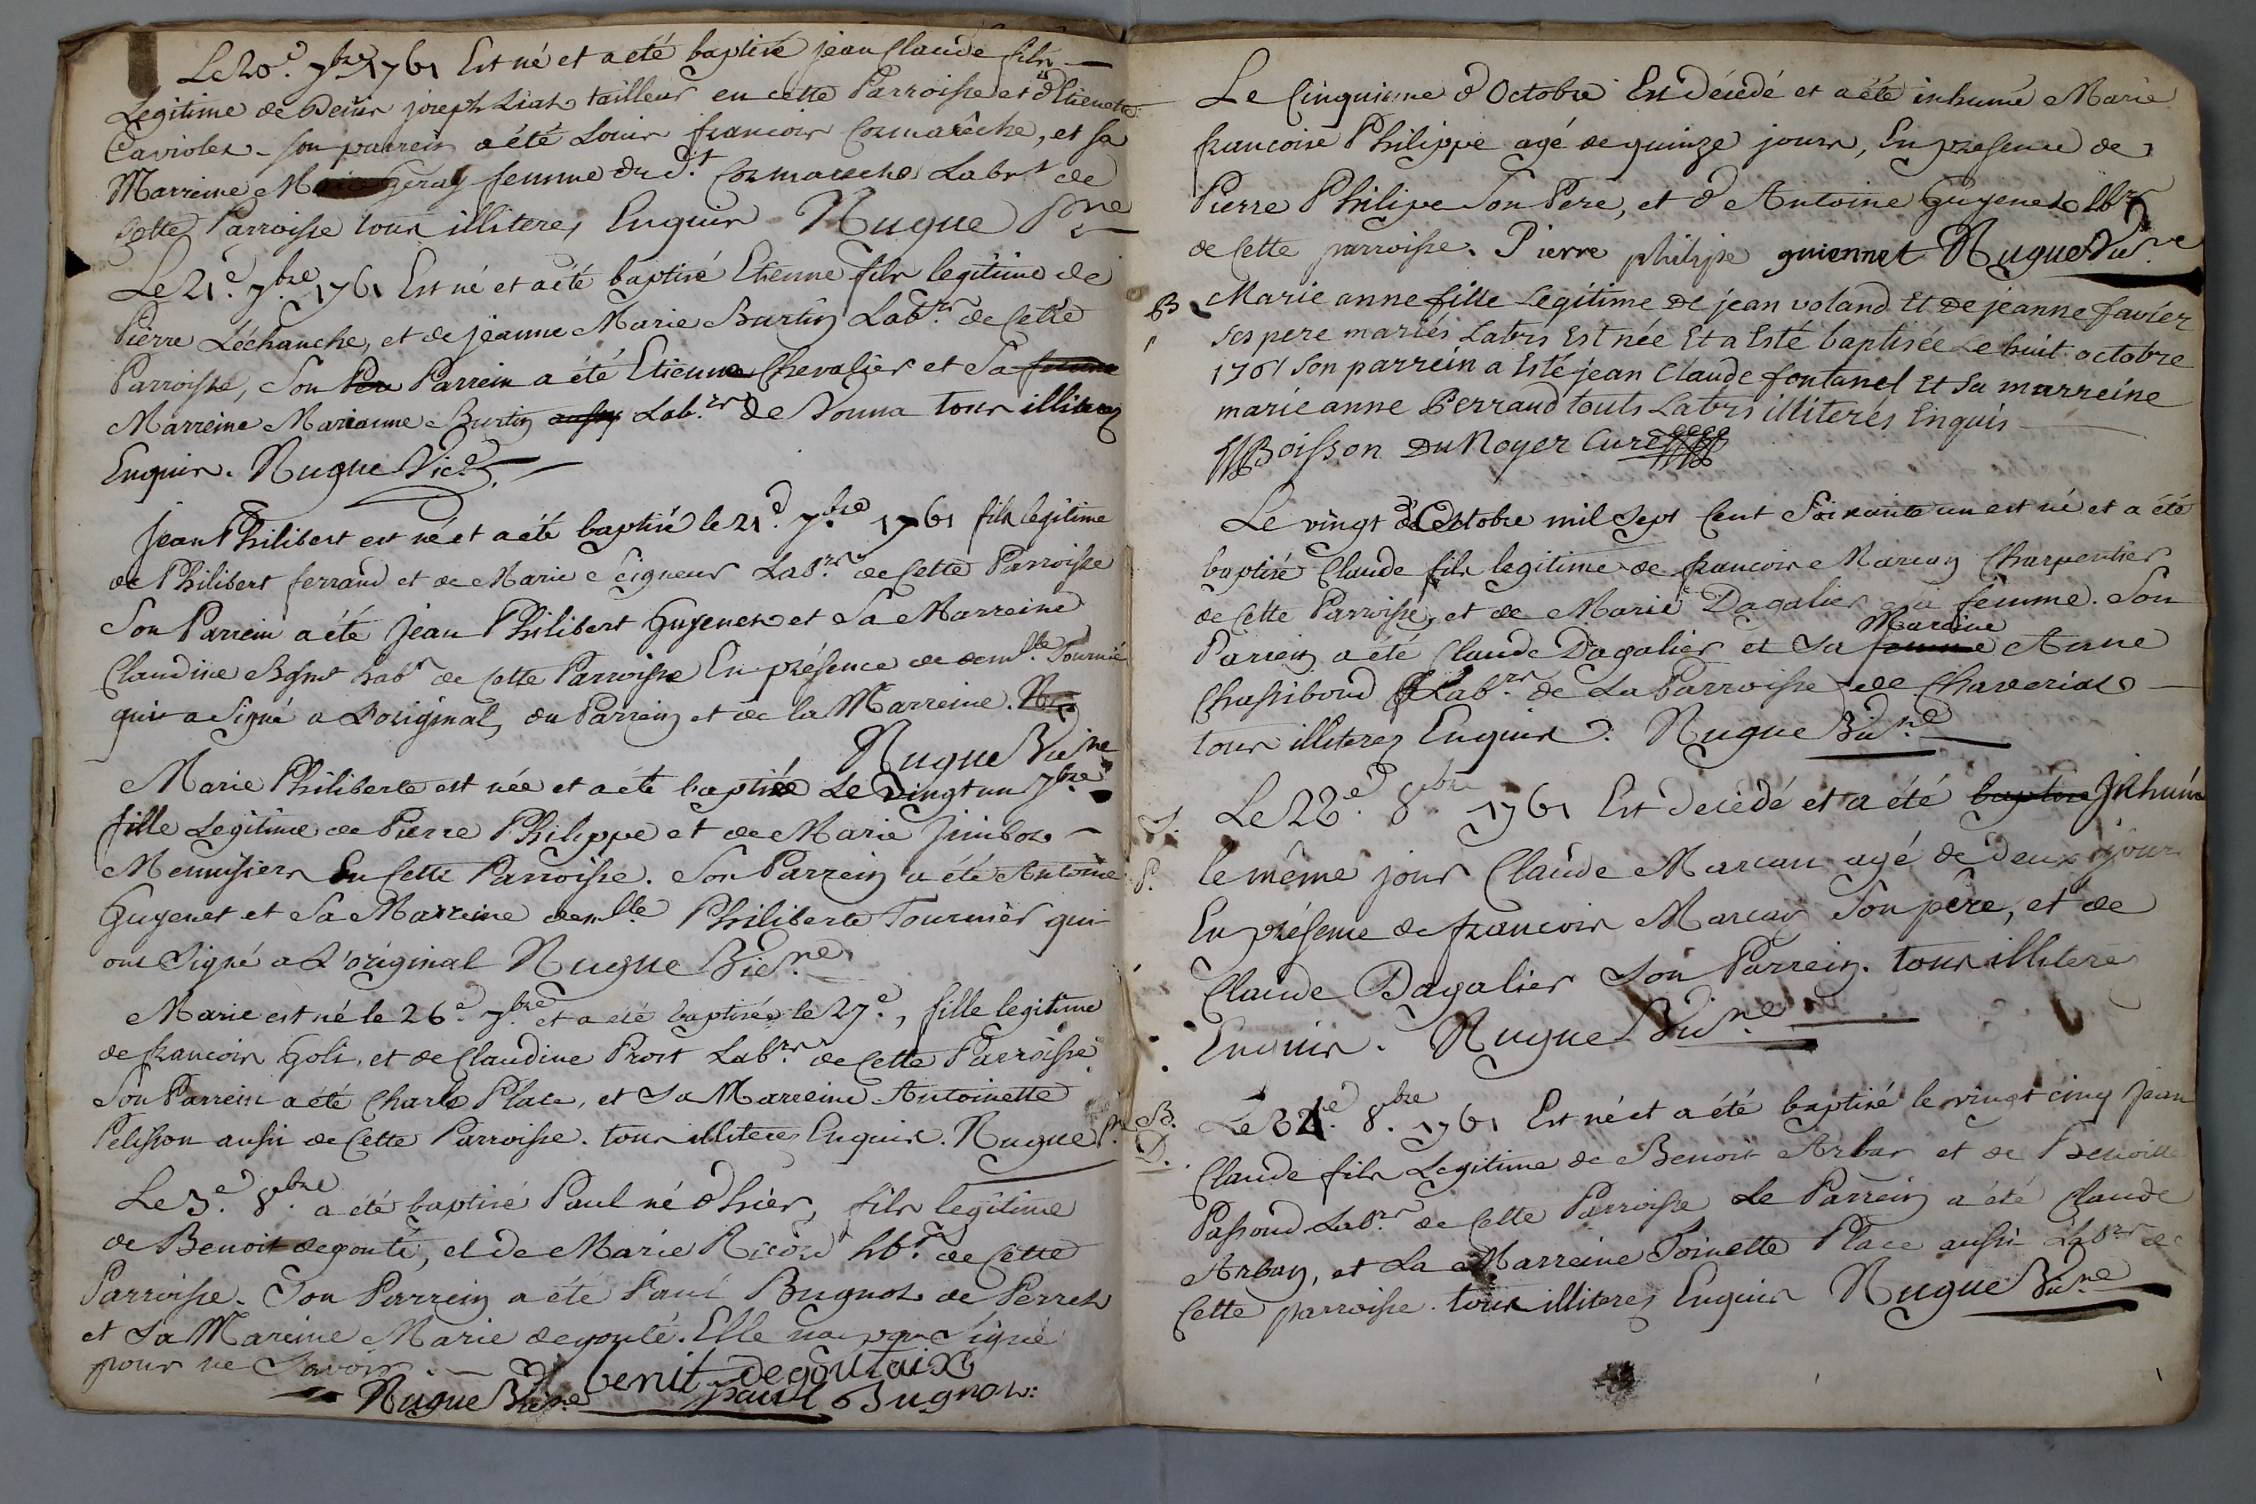 Le 20.e 7bre 1761 Est né et a eté baptisé jean Claude fils
Legitime de Denis joseph Liat tailleur en cette Parroisse et d'Etienette
Cavioles son parrein a été Louis francois Cormareche, et sa
Marreine femme du d.t Cormareche Labrs de
Cette Parroisse tous illiteres Enquis Nugue
Le 21.e 7.bre 1761 Est né et a été baptisé Etienne fils legitime de
Pierre Léchanche, et de jeanne Marie Burtin Lab.rs de Cette
Parroisse, Son Parrein a été Etienne Chevalier et Sa
Marreine Marianne Burtin Lab.rs de tous illiteres
Enquis. Nugue Vic.e
Jean Philibert est né et a été baptisé le 21.e 7.bre 1761 fils legitime
de Philibert ferrand et de Marie Seigneur Lab.rs de Cette Parroisse
Son Parrein a été Jean Philibert Guyenet et Sa Marreine
Claudine lab.rs de Cette Parroisse En présence de demlle Tournié
qui a Signé a L'original, du Parrein et de la Marreine.
Nugue Vic.re
Marie Philiberte est née et a été baptisée Le vingt un 7bre
fille Legitime de Pierre Philippe et de Marie
Menuisiers En Cette Parroisse. Son Parrein a été Antoine
Guyenet et Sa Marreine demlle Philiberte Tournier qui
ont Signé a L'original Nugue Vic.re
Marie est né le 26.e 7.bre et a été baptisée le 27.e, fille legitime
de francois Goli, et de Claudine Prost Lab.rs de Cette Parroisse
Son Parrein a été Charle Place, et Sa Marreine Antoinette
Pelisson aussi de Cette Parroisse. tous illiteres Enquis. Nugue
Le 3.e 8.bre a été baptisé Paul né d'hier, fils legitime
de Benoit degouté, et de Marie de Cette
Parroisse. Son Parrein a été Paul Bugnot de Perret
et Sa Mareine Marie degouté. Elle na pas Signé
pour ne Savoir.
benit degoutaix
Nugue Vic.re paul Bugnot:
Le Cinquieme d'Octobre Est décedé et a été inhumé Marie
francoise Philippe agé de quinze jours, En presence de
Pierre Philipe Son Pere, et d'Antoine Guyenet lbrs
de Cette parroisse. Pierre philipe guiennet Nugue Vic.re
B
Marie anne fille Legitime De jean voland Et De jeanne favier
ses pere mariés Labrs Est née Et a Esté baptisée Le huit octobre
1761 Son parrein a Esté jean Claude fontanel Et Sa marreine
marie anne Perraud touts Labrs illiterés Enquis
Boisson Du Noyer Curé
Le vingt d'Octobre mil Sept Cent Soixante un est né et a été
baptisé Claude fils legitime de francois Marcan Charpentier
de Cette Parroisse, et de Marie Dagalier sa femme. Son
Parrein a été Claude Dagalier et Sa femme Mareine Anne
Chassiboud Lab.rs de La Parroisse de Chaveriat
tous illiteres Enquis. Nugue Vic.re
Le 22.e 8.bre 1761 Est décédé et a été Inhumé
S. le même jour Claude Marcan agé de deux jours
En présence de francois Marcan Son père, et de
Claude Dagalier Son Parrein. tous illiteres
Enquis. Nugue Vic.re
B. Le 24.e 8.bre 1761 Est né et a été baptisé le vingt cinq Jean
D. Claude fils Legitime de Benoit Arban et de Benoitte
Passoud Lab.rs de Cette Parroisse Le Parrein a été Claude
Arban, et La Marreine Toinette Place aussi Lab.rs de
Cette parroisse. tous illiteres Enquis Nugue Vic.re